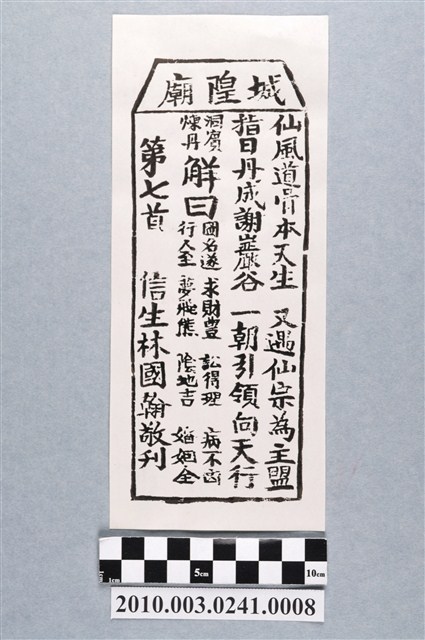 城隍廟
仙風道骨本天生　又遇仙宗為主盟
指日丹成謝巖谷　一朝引領向天行
洞賓煉丹
解曰
國名遂　求財豐　訟得理　病不凶
行人至　夢飛熊　陰地吉　婚姻全
第七首　信生林國翰敬刋
1cm
5cm
10cm
2010.003.0241.0008